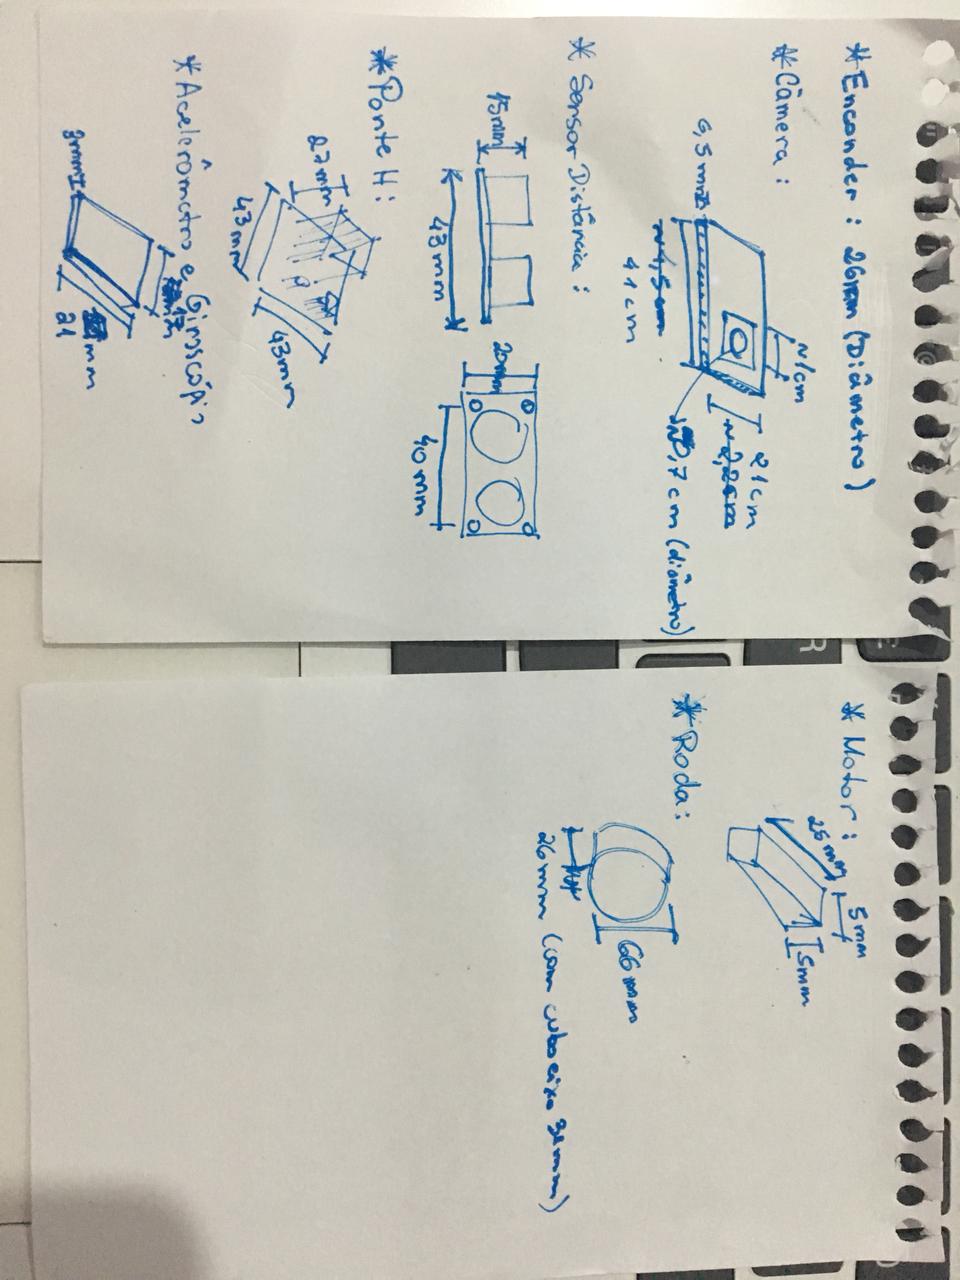 * Enconder: 26mm (Diâmetro)
* Câmera:
~1cm
21cm
~2,2cm
6,5mm
~0,7cm (diâmetro)
~4,5cm
41cm
* Sensor Distância:
15mm
43mm
20mm
40mm
* Ponte H:
27mm
43mm
43mm
* Acelerômetro e Giroscópio
17
3mm
mm
21
* Motor:
25mm
5mm
5mm
* Roda:
66mm
26mm (com cubo eixo 31mm)
E
R